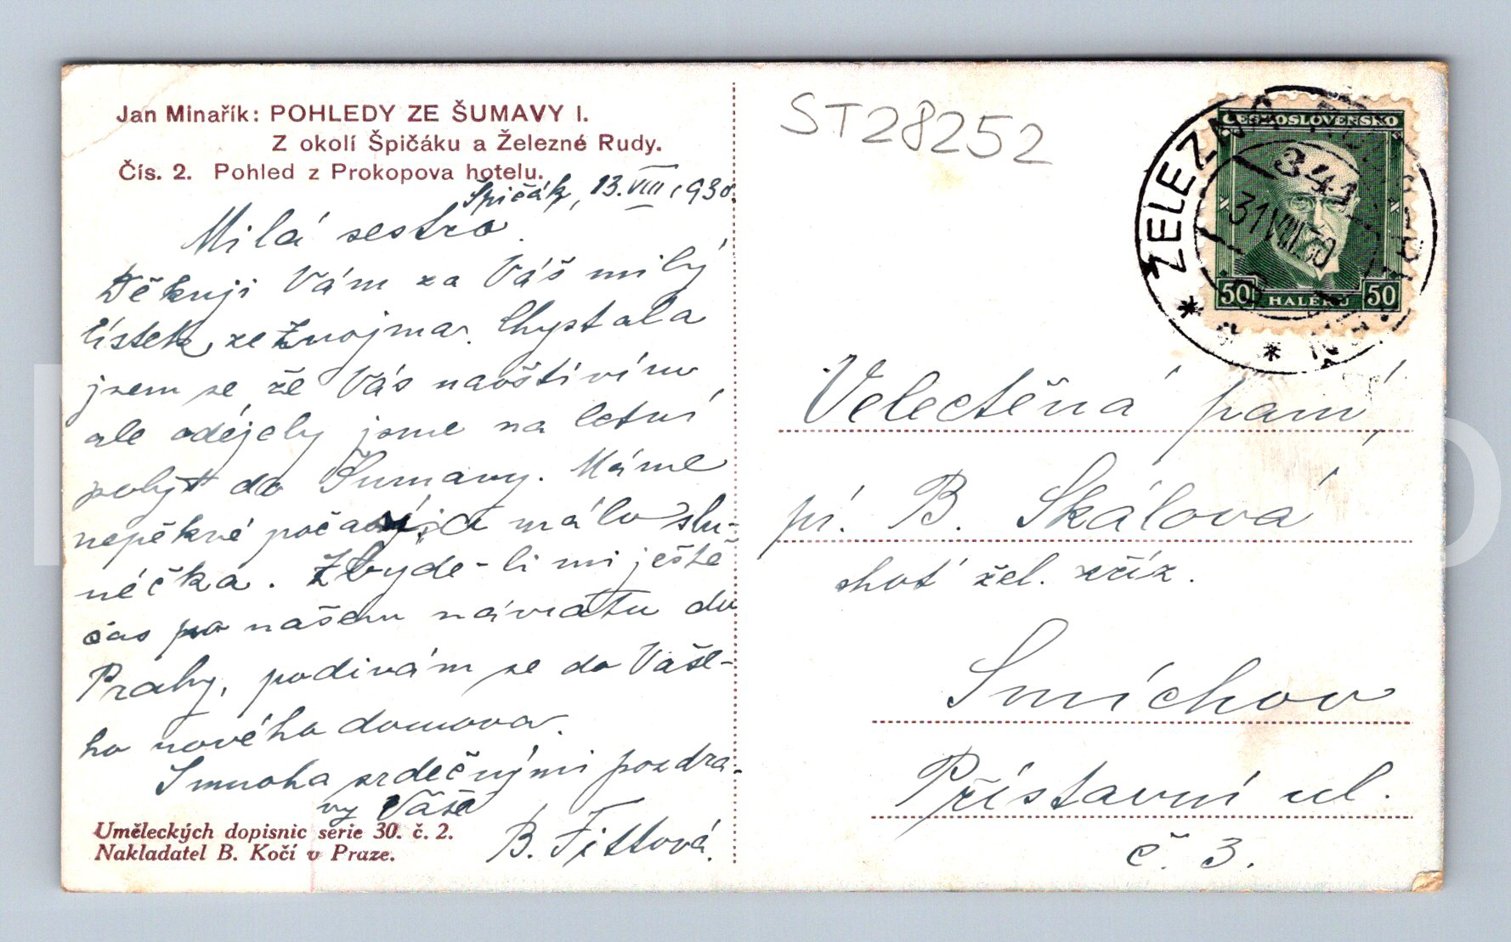 Jan Minařík: POHLEDY ZE ŠUMAVY I.
Z okolí Špičáku a Železné Rudy.
Čís. 2. Pohled z Prokopova hotelu.
Špičák, 13. VIII. 1930.
Milá sestro
Děkuji Vám za Váš milý
lístek ze Znojma. Chystala
jsem se že Vás navštívím
ale odejely jsme na letní
pobyt do Šumavy. Máme
nepěkné počasí, a málo slu-
néčka. Zbyde-li mi ještě
čas po našem návratu do
Prahy, podívám se do Vaše-
ho nového domova.
S mnoha srdečnými pozdra-
vy Vaše
B. Fittová.
Uměleckých dopisnic serie 30. č. 2.
Nakladatel B. Kočí v Praze.
ST28252
ČESKOSLOVENSKO
50 HALÉŘŮ 50
ŽELEZNÁ
31.VIII.30
Velectěná paní,
pí. B. Skálová
choť žel. zříz.
Smíchov
Přístavní ul.
č. 3.